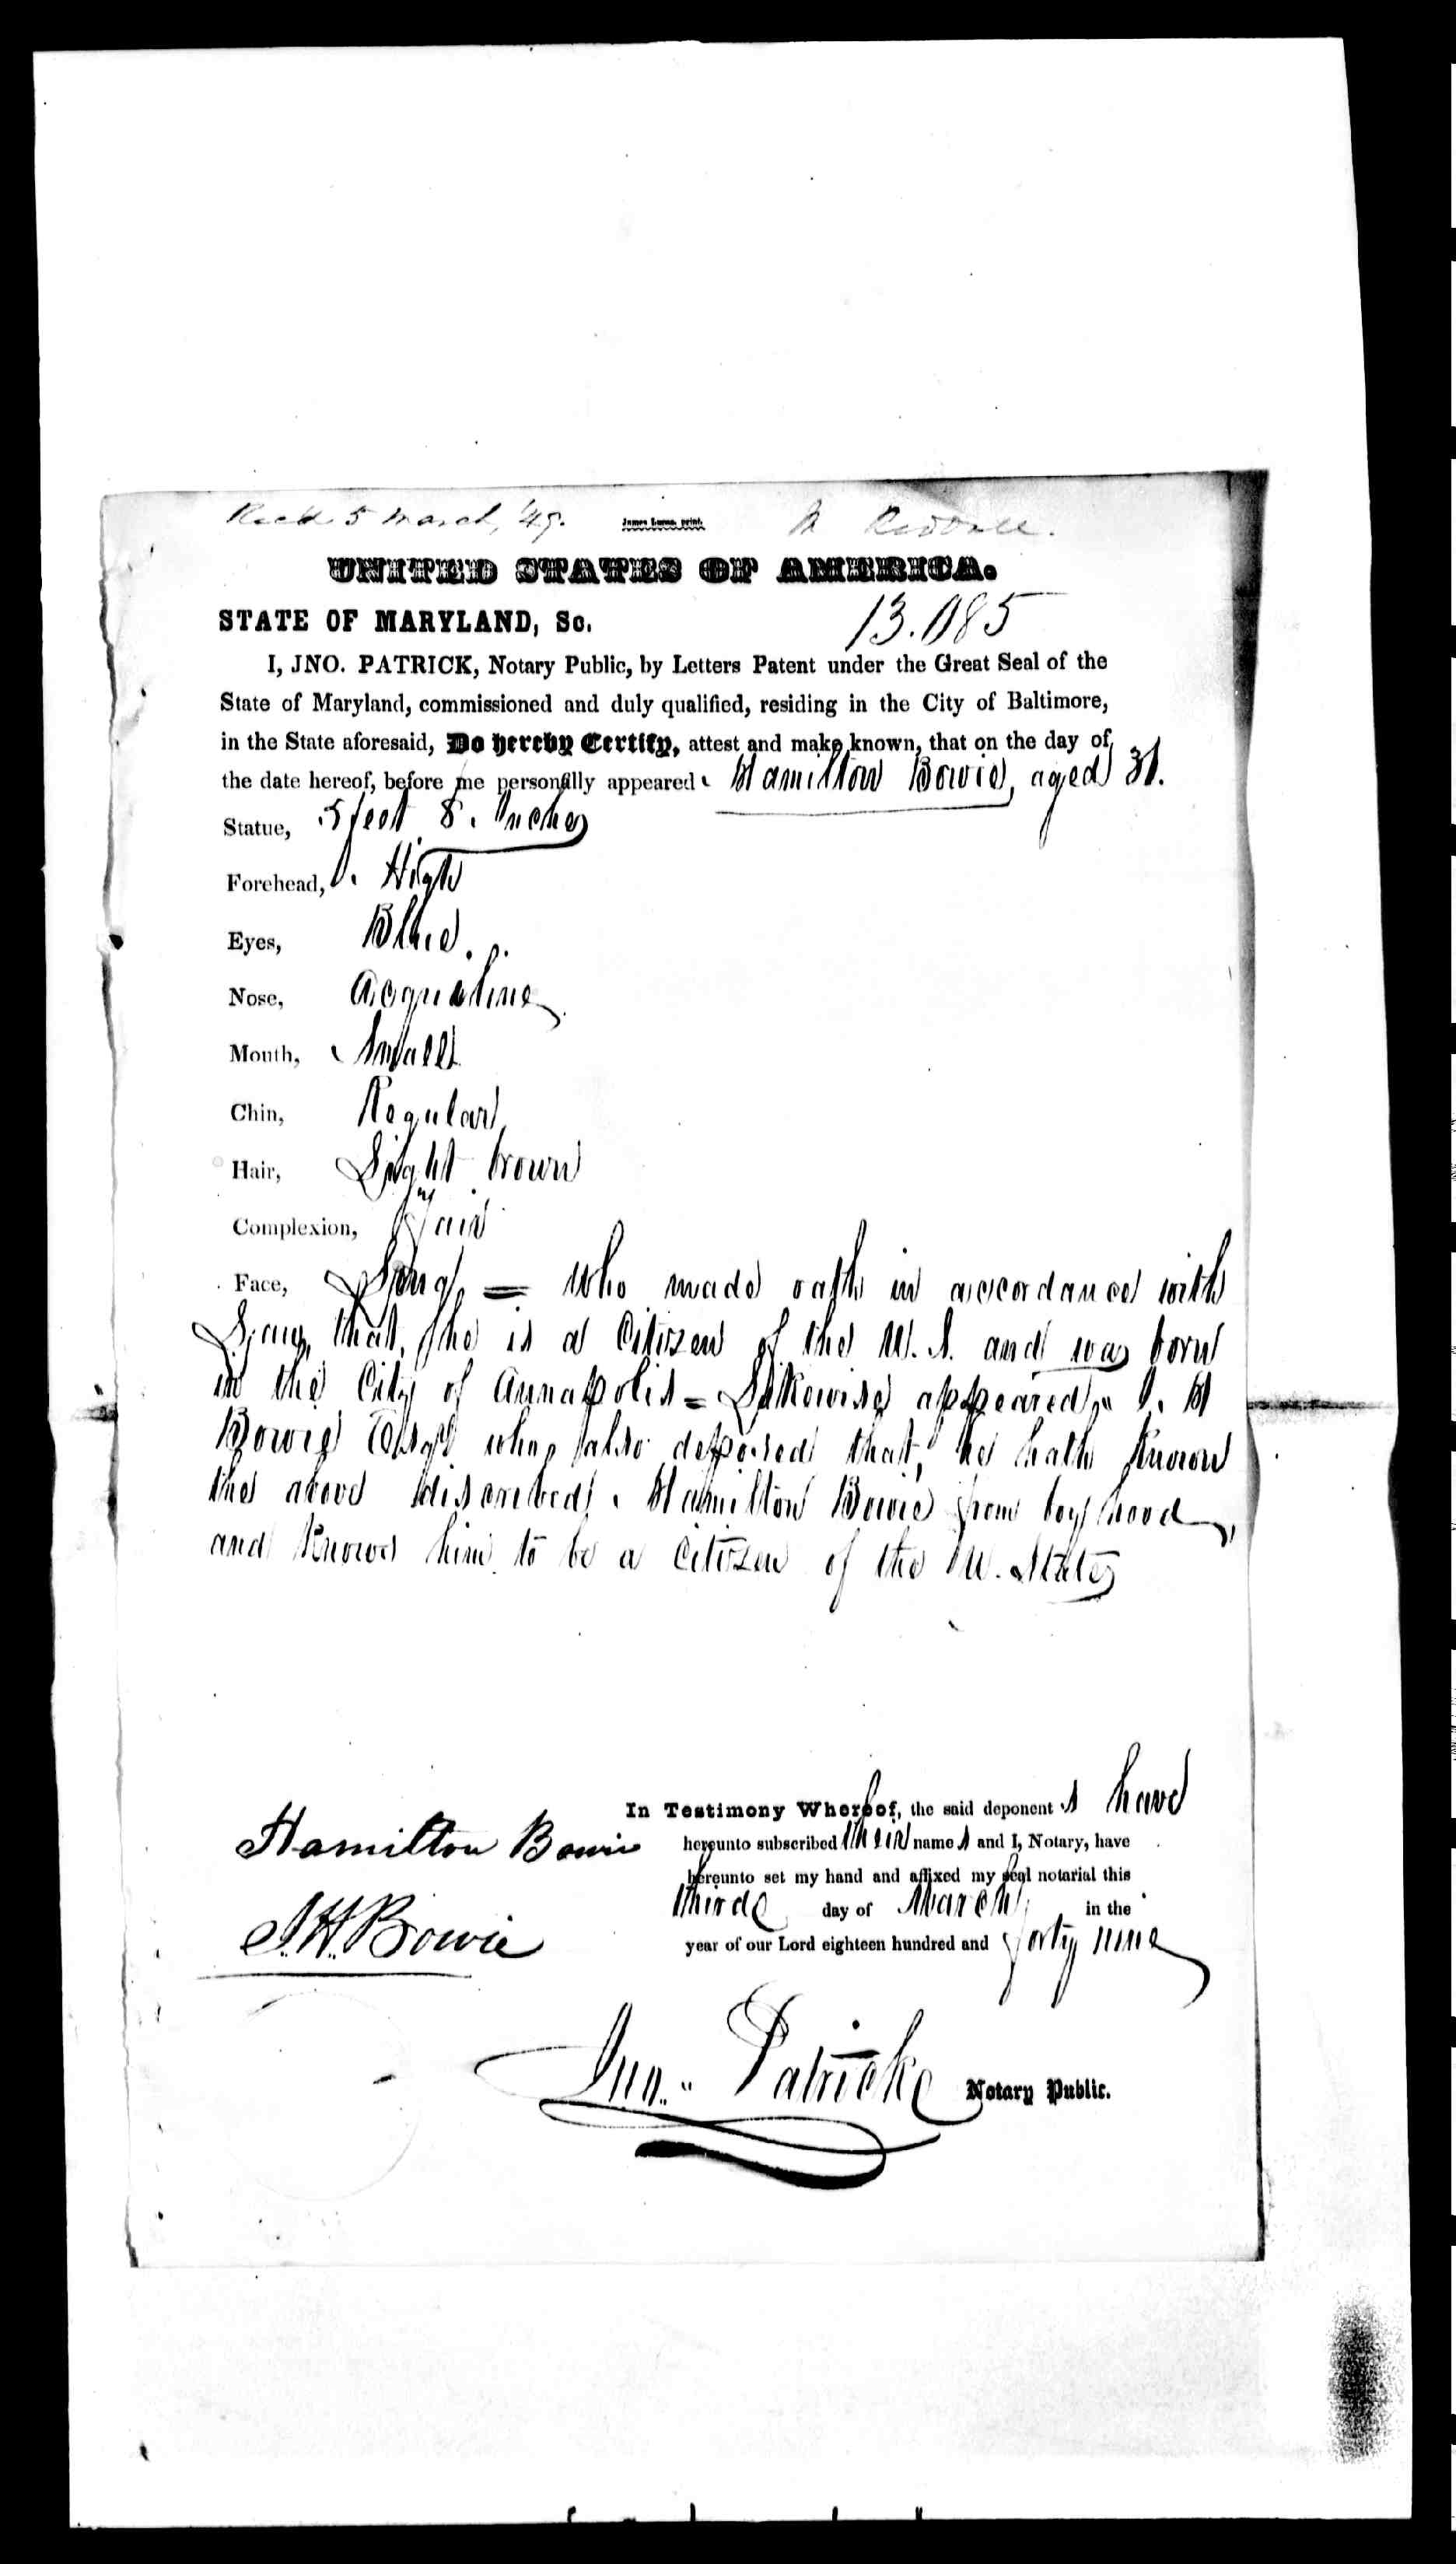 Recd 5 March, '49. James Lucas, print.
UNITED STATES OF AMERICA.
STATE OF MARYLAND, Sc.
I, JNO. PATRICK, Notary Public, by Letters Patent under the Great Seal of the
State of Maryland, commissioned and duly qualified, residing in the City of Baltimore,
in the State aforesaid, Do hereby Certify, attest and make known, that on the day of
the date hereof, before me personally appeared Hamilton Bowie, aged
Statue, 5 feet 8. Inches
Forehead, High
Eyes, Blue.
Nose, Acquiline
Mouth, Small
Chin, Regular
Hair, Light brown
Complexion, Fair
Face, Long = who made oath in accordance with
Law, that, he is a Citizen of the U. S. and was born
in the City of Annapolis = Likewise appeared, J. H
Bowie Esqr who, also deposed that, he hath Known
the above discribed, Hamilton Bowie from boyhood,
and Knows him to be a Citizen of the U. States
In Testimony Whereof, the said deponent s have
Hamilton Bowie hereunto subscribed their name s and I, Notary, have
hereunto set my hand and affixed my seal notarial this
third day of March in the
J. H. Bowie year of our Lord eighteen hundred and forty nine
Jno. Patrick Notary Public.